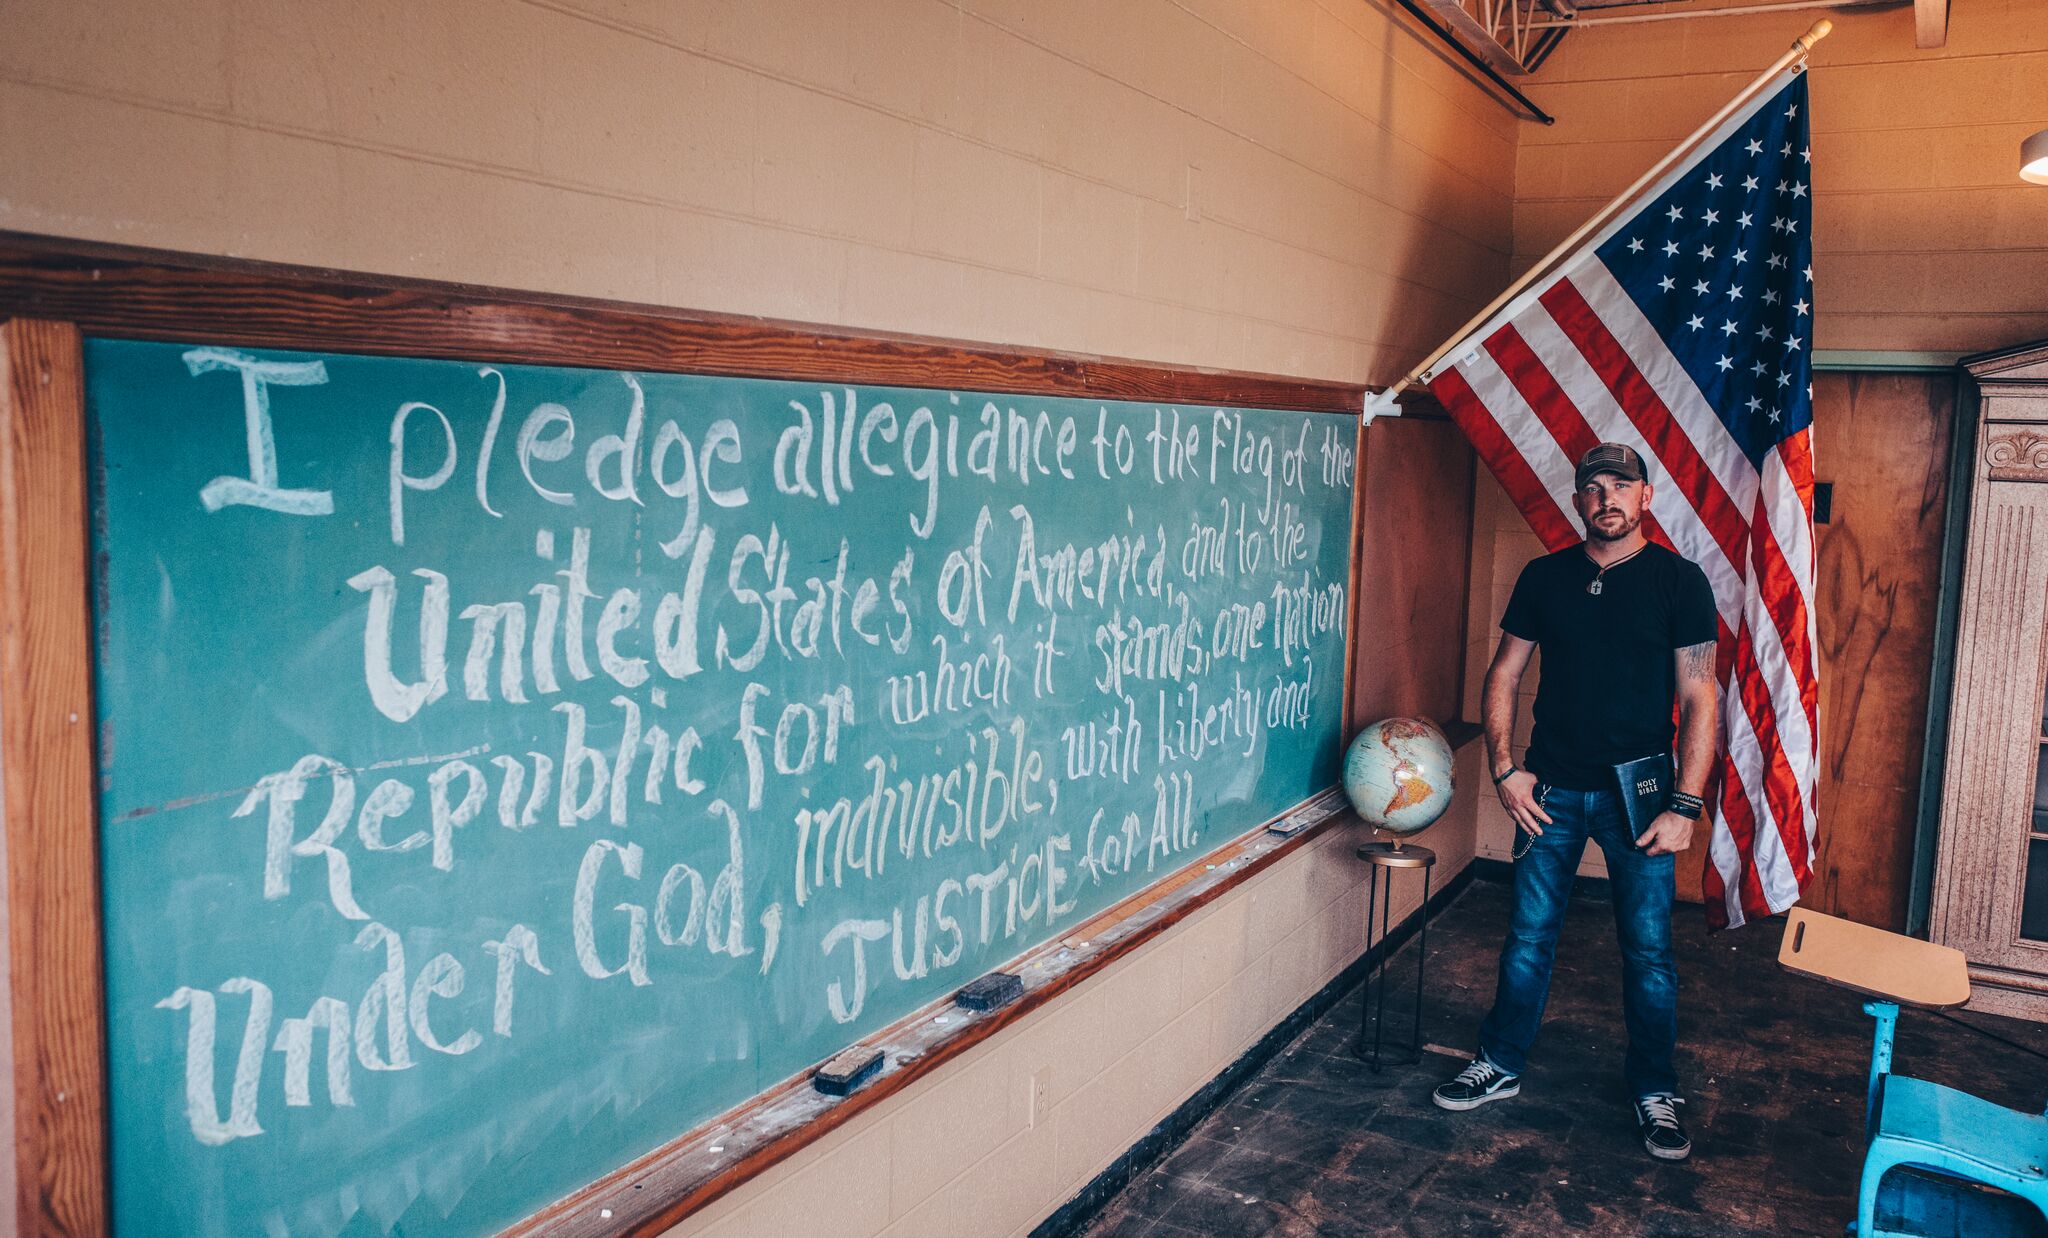 I pledge allegiance to the Flag of the
United States of America, and to the
Republic for which it stands, one nation
Under God, indivisible, with Liberty and
JUSTiCE for All.
HOLY
BIBLE